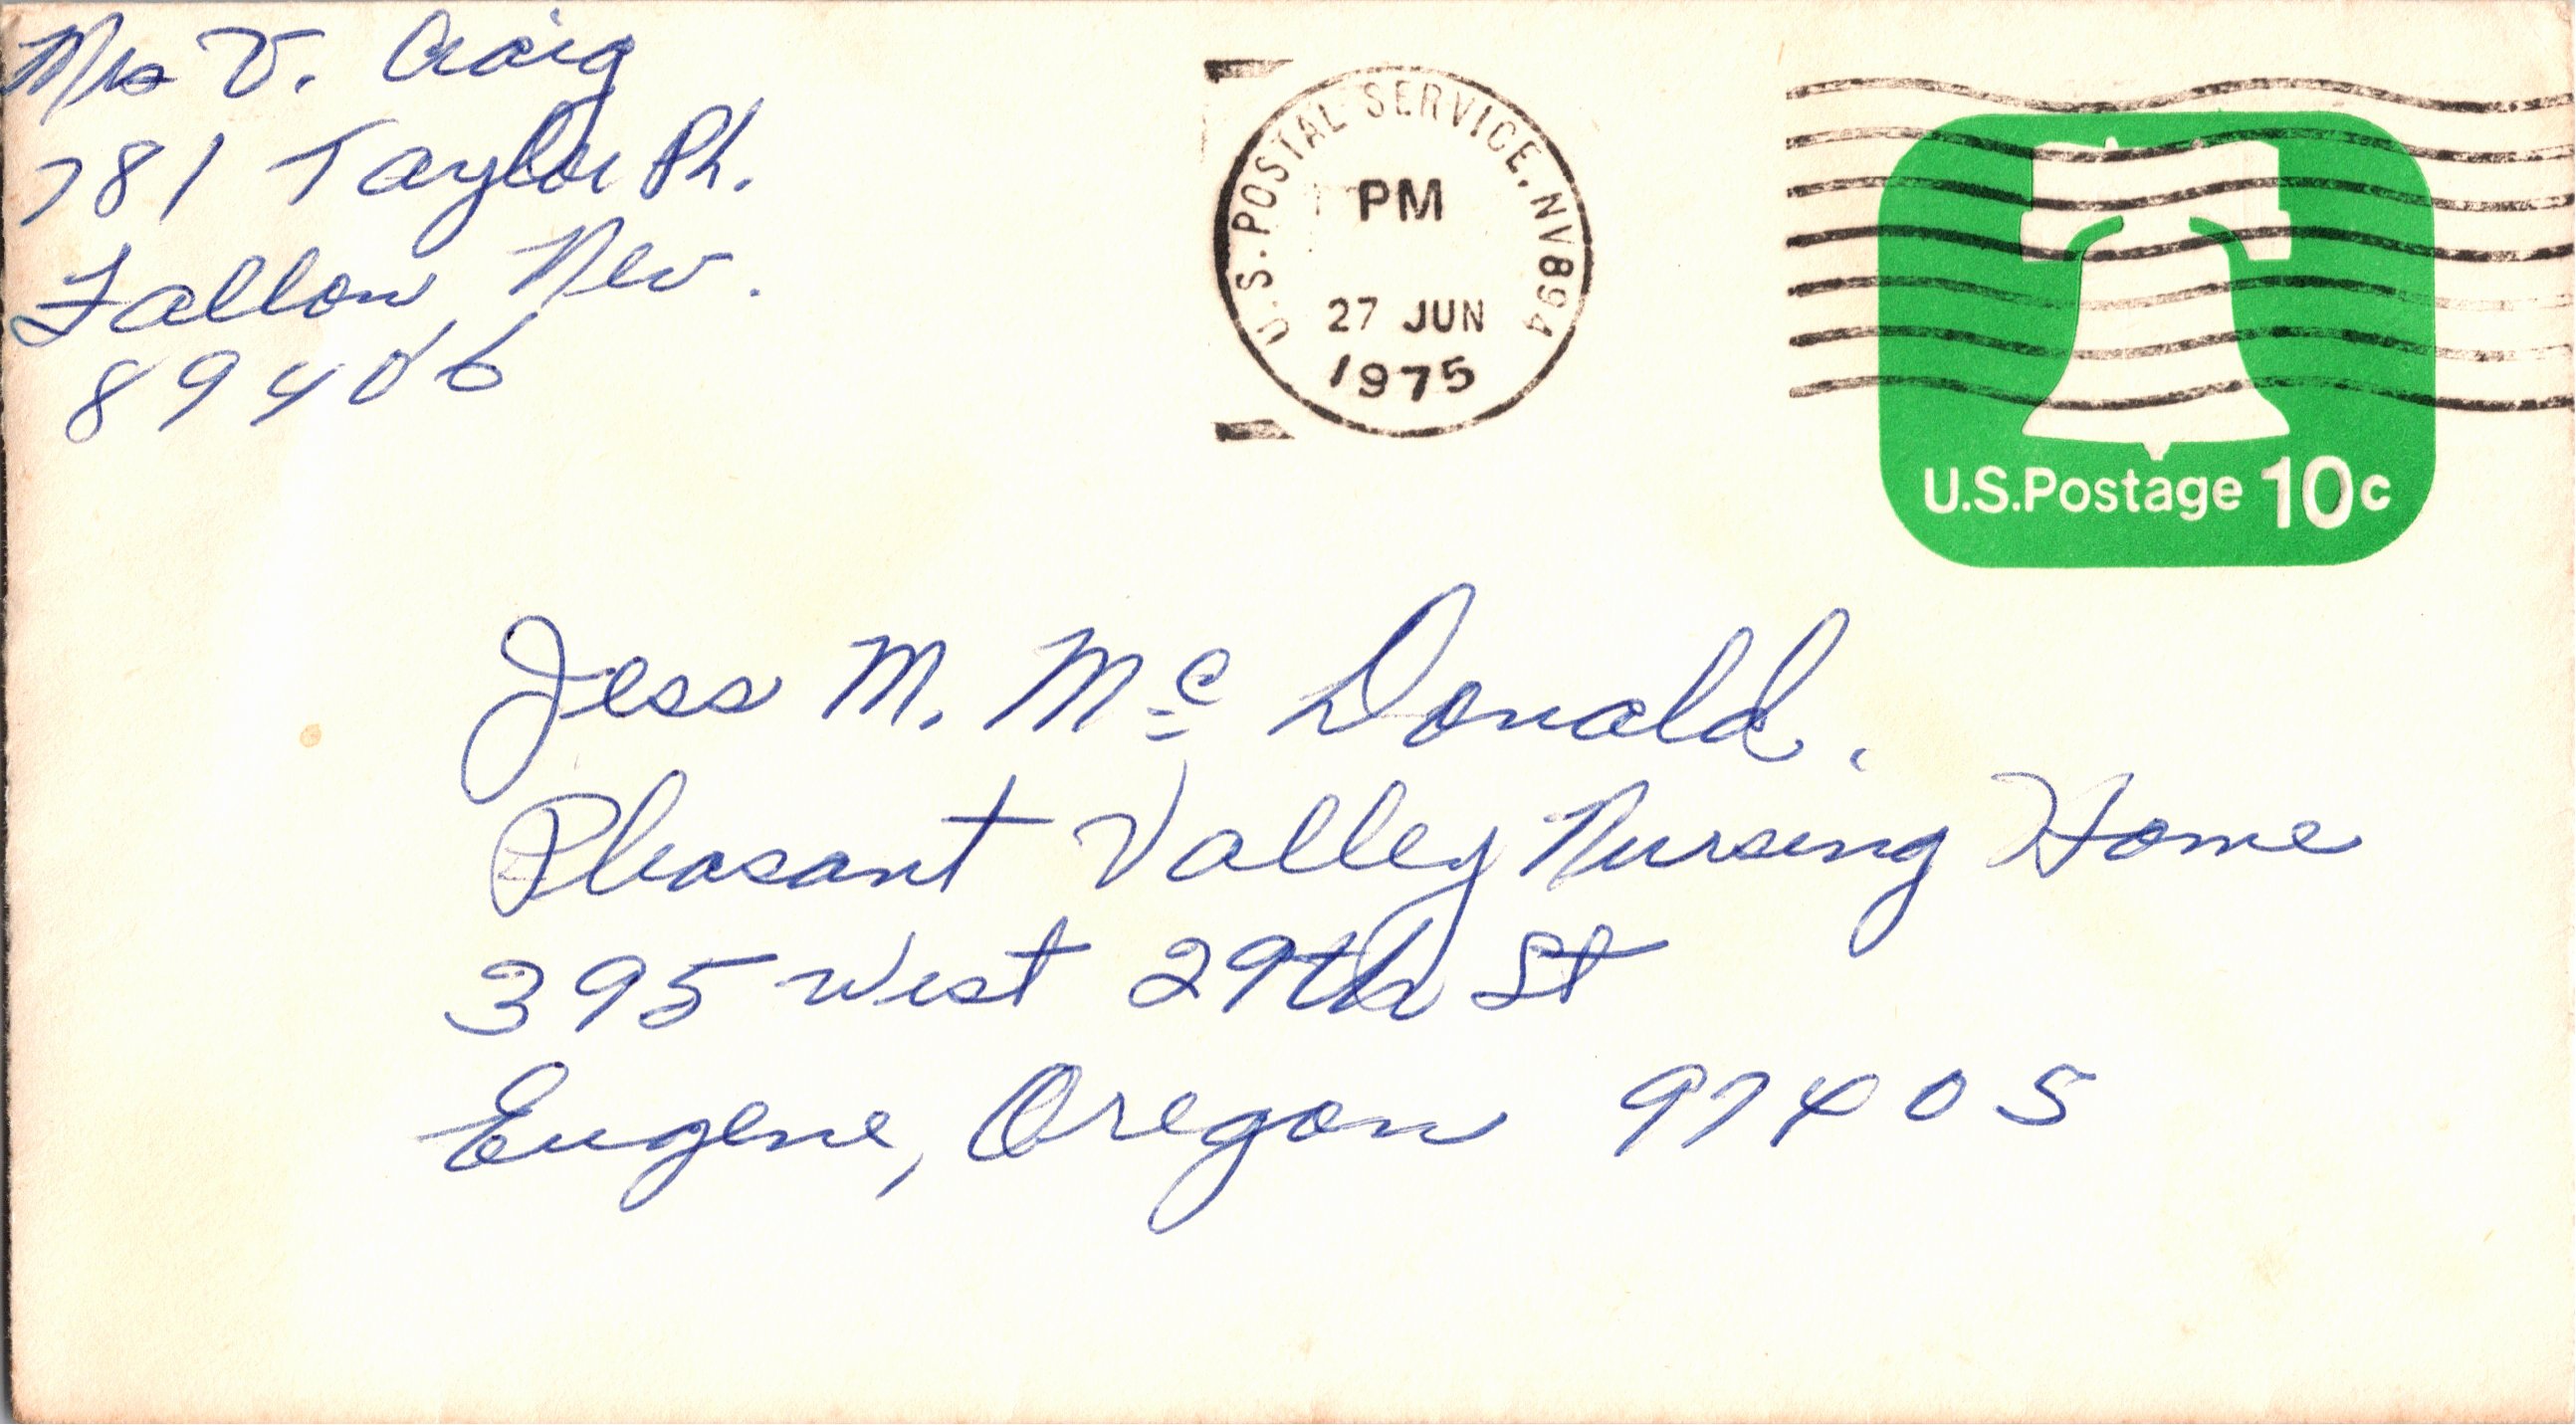 Mrs V. Craig
781 Taylor Pl.
Fallon Nev.
89406
U.S. POSTAL SERVICE, NV 894
PM
27 JUN
1975
U.S.Postage 10c
Jess M. Mc Donald.
Pleasant Valley Nursing Home
395 West 29th St
Eugene, Oregon 97405